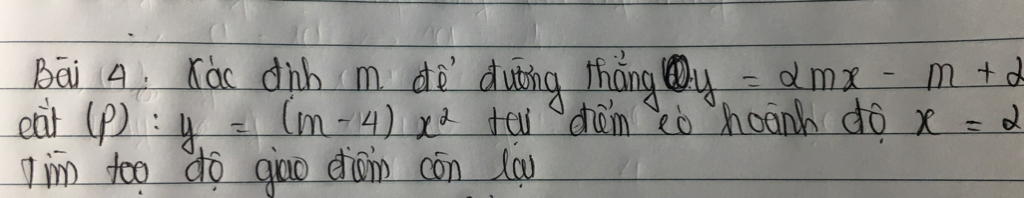 Bài 4: Xác định m để đường thẳng y = 2mx - m + 2
cắt (P) : y = (m-4) x² tại điểm có hoành độ x = 2
Tìm toạ độ giao điểm còn lại